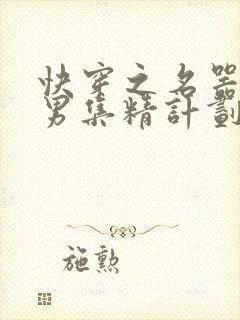 快穿之名器
男集精計劃
施勲